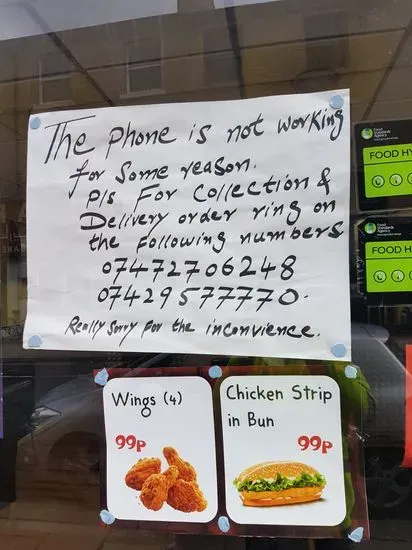 The phone is not working
for some reason.
pls For Collection &
Delivery order ring on
the following numbers
07472706248
07429577770.
Really sorry for the inconvience.
Food
Standards
Agency
FOOD HY
Food
Standards
Agency
FOOD H
Wings (4)
99P
Chicken Strip
in Bun
99P